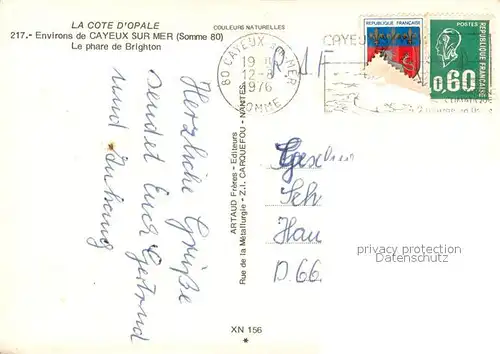 LA COTE D'OPALE
COULEURS NATURELLES
217.- Environs de CAYEUX SUR MER (Somme 80)
Le phare de Brighton
80 CAYEUX-S-MER
19 H
12-8
1976
SOMME
CAYEUX
REPUBLIQUE FRANÇAISE
POSTES
0,60
REPUBLIQUE FRANÇAISE
Herzliche Grüße
sendet Euch Gertrud
und Anhang
ARTAUD Frères - Editeurs
Rue de la Métallurgie - Z.I. CARQUEFOU - NANTES
Geschw
Sch
Hau
D 66
privacy protection
Datenschutz
XN 156
*